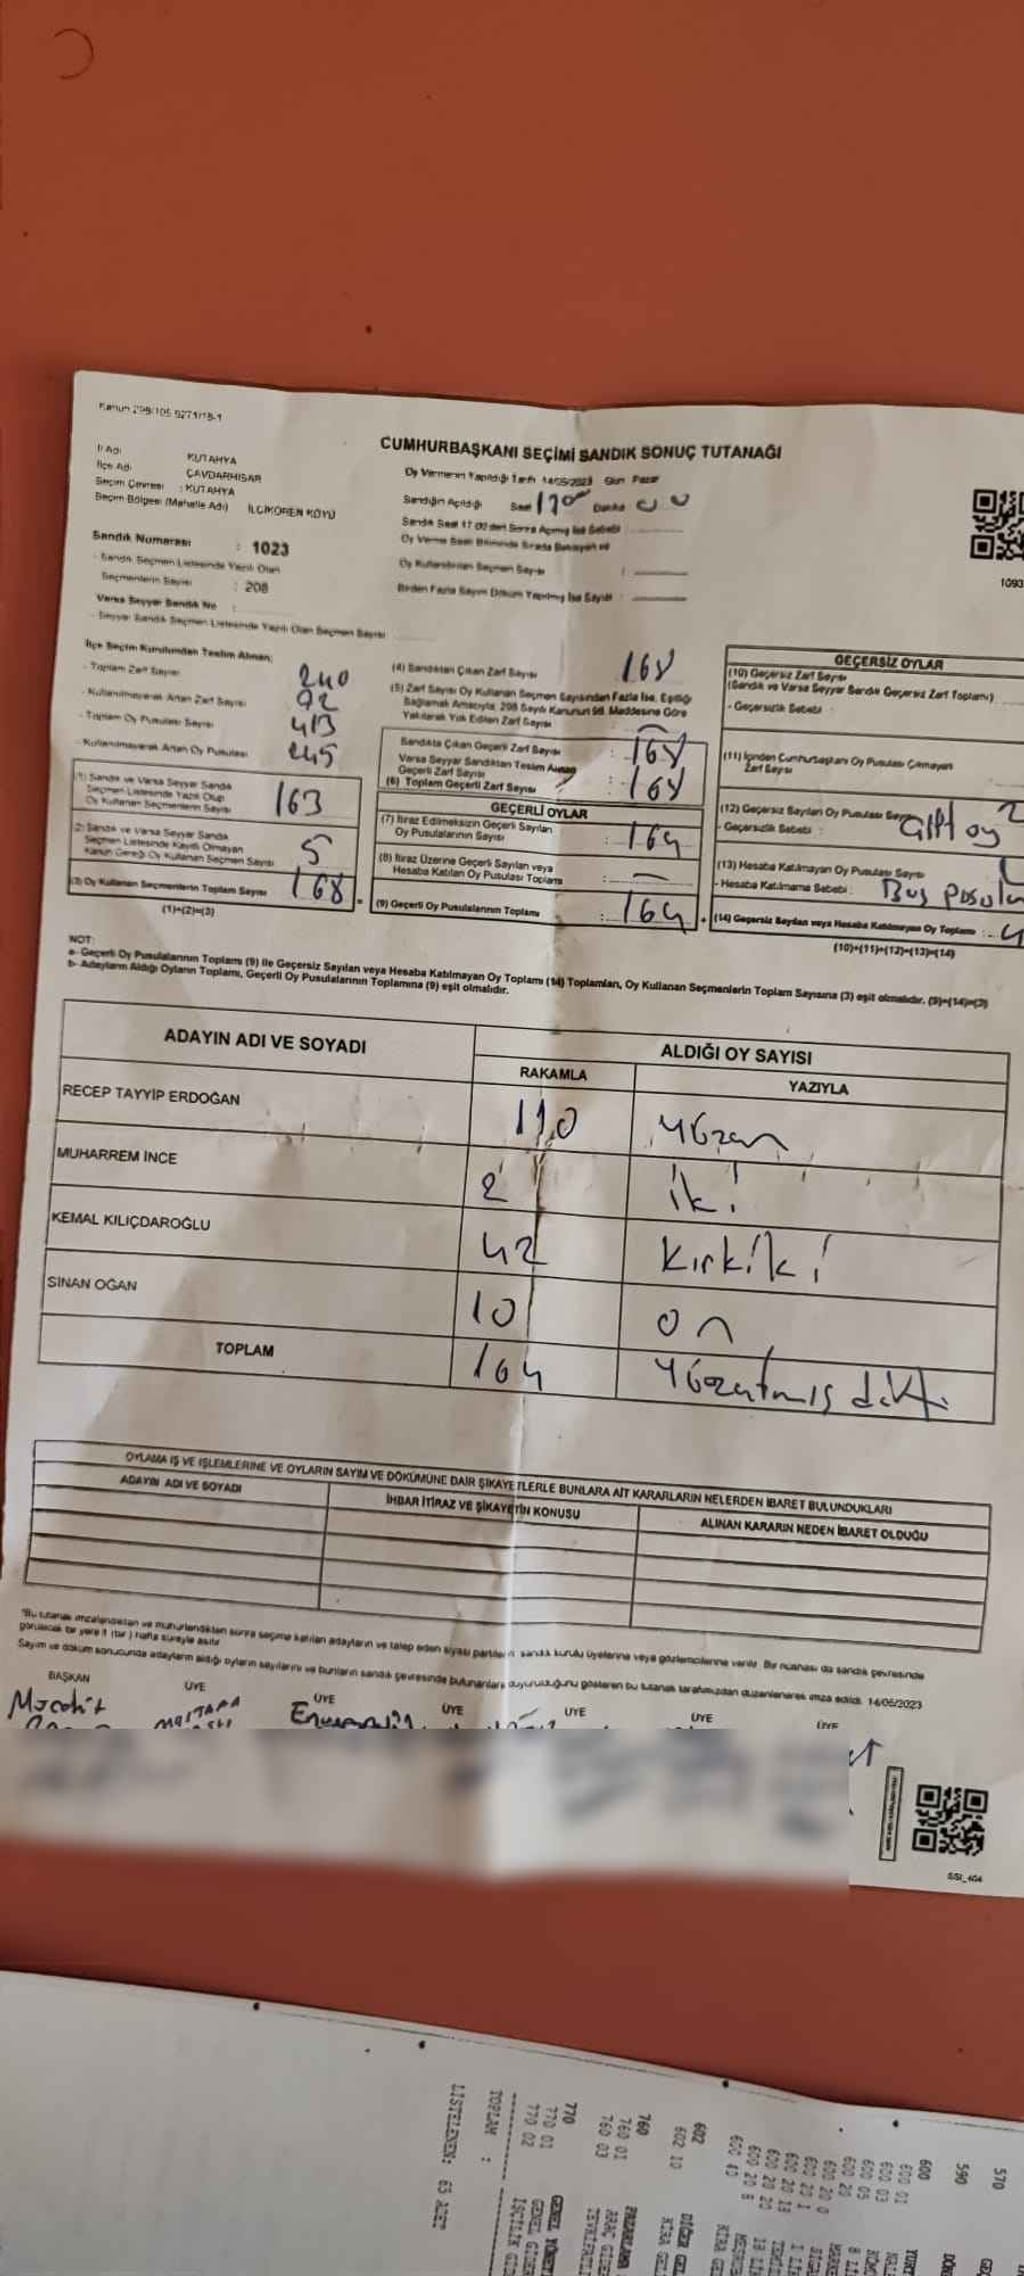 Kanun 298/105 6271/18-1
CUMHURBAŞKANI SEÇİMİ SANDIK SONUÇ TUTANAĞI
İl Adı KÜTAHYA
İlçe Adı ÇAVDARHİSAR
Seçim Çevresi : KÜTAHYA
Seçim Bölgesi (Mahalle Adı) İLCİKÖREN KÖYÜ
Sandık Numarası : 1023
- Sandık Seçmen Listesinde Yazılı Olan
Seçmenlerin Sayısı : 208
Varsa Seyyar Sandık No :
- Seyyar Sandık Seçmen Listesinde Yazılı Olan Seçmen Sayısı
Oy Vermenin Yapıldığı Tarih 14/05/2023 Gün Pazar
Sandığın Açıldığı Saat Dakika
Sandık Saat 17.00'den Sonra Açılmış İse Sebebi
Oy Verme Saati Bitiminde Sırada Bekleyen ve
Oy Kullandırılan Seçmen Sayısı :
Birden Fazla Sayım Döküm Yapılmış İse Sayısı :
1093
İlçe Seçim Kurulundan Teslim Alınan;
- Toplam Zarf Sayısı 240
- Kullanılmayarak Artan Zarf Sayısı
- Toplam Oy Pusulası Sayısı 413
- Kullanılmayarak Artan Oy Pusulası 245
(1) Sandık ve Varsa Seyyar Sandık
Seçmen Listesinde Yazılı Olup
Oy Kullanan Seçmenlerin Sayısı 163
(2) Sandık ve Varsa Seyyar Sandık
Seçmen Listesinde Kayıtlı Olmayan
Kanun Gereği Oy Kullanan Seçmen Sayısı 5
(3) Oy Kullanan Seçmenlerin Toplam Sayısı 168
(1)+(2)=(3)
(4) Sandıktan Çıkan Zarf Sayısı 168
(5) Zarf Sayısı Oy Kullanan Seçmen Sayısından Fazla İse, Eşitliği
Sağlamak Amacıyla, 298 Sayılı Kanunun 98. Maddesine Göre
Yakılarak Yok Edilen Zarf Sayısı
Sandıkta Çıkan Geçerli Zarf Sayısı : 168
Varsa Seyyar Sandıktan Teslim Alınan
Geçerli Zarf Sayısı
(6) Toplam Geçerli Zarf Sayısı : 168
GEÇERLİ OYLAR
(7) İtiraz Edilmeksizin Geçerli Sayılan
Oy Pusulalarının Sayısı : 164
(8) İtiraz Üzerine Geçerli Sayılan veya
Hesaba Katılan Oy Pusulası Toplamı :
(9) Geçerli Oy Pusulalarının Toplamı : 164
GEÇERSİZ OYLAR
(10) Geçersiz Zarf Sayısı
(Sandık ve Varsa Seyyar Sandık Geçersiz Zarf Toplamı)
- Geçersizlik Sebebi :
(11) İçinden Cumhurbaşkanı Oy Pusulası Çıkmayan
Zarf Sayısı
(12) Geçersiz Sayılan Oy Pusulası Sayısı 2
- Geçersizlik Sebebi : Çift oy
(13) Hesaba Katılmayan Oy Pusulası Sayısı
- Hesaba Katılmama Sebebi : Boş pusula
(14) Geçersiz Sayılan veya Hesaba Katılmayan Oy Toplamı : 4
(10)+(11)+(12)+(13)=(14)
NOT:
a- Geçerli Oy Pusulalarının Toplamı (9) ile Geçersiz Sayılan veya Hesaba Katılmayan Oy Toplamı (14) Toplamları, Oy Kullanan Seçmenlerin Toplam Sayısına (3) eşit olmalıdır. (9)+(14)=(3)
b- Adayların Aldığı Oyların Toplamı, Geçerli Oy Pusulalarının Toplamına (9) eşit olmalıdır.
ADAYIN ADI VE SOYADI ALDIĞI OY SAYISI
RAKAMLA YAZIYLA
RECEP TAYYİP ERDOĞAN 110 yüzon
MUHARREM İNCE 2 iki
KEMAL KILIÇDAROĞLU 42 kırkiki
SİNAN OĞAN 10 on
TOPLAM 164 yüzatmışdört
OYLAMA İŞ VE İŞLEMLERİNE VE OYLARIN SAYIM VE DÖKÜMÜNE DAİR ŞİKAYETLERLE BUNLARA AİT KARARLARIN NELERDEN İBARET BULUNDUKLARI
ADAYIN ADI VE SOYADI İHBAR İTİRAZ VE ŞİKAYETİN KONUSU ALINAN KARARIN NEDEN İBARET OLDUĞU
*Bu tutanak imzalandıktan ve mühürlendikten sonra seçime katılan adayların ve talep eden siyasi partilerin sandık kurulu üyelerine veya gözlemcilerine verilir. Bir nüshası da sandık çevresinde
görülecek bir yere 1 (bir) hafta süreyle asılır
Sayım ve döküm sonucunda adayların aldığı oyların sayılarını ve bunların sandık çevresinde bulunanlara duyurulduğunu gösteren bu tutanak tarafımızdan düzenlenerek imza edildi. 14/05/2023
BAŞKAN ÜYE ÜYE ÜYE ÜYE ÜYE ÜYE
SSI_404
LİSTELENEN: 65 ADET
TOPLAM :
770
770 01
770 02
760
760 01
760 03
602
602 10
600
590
570